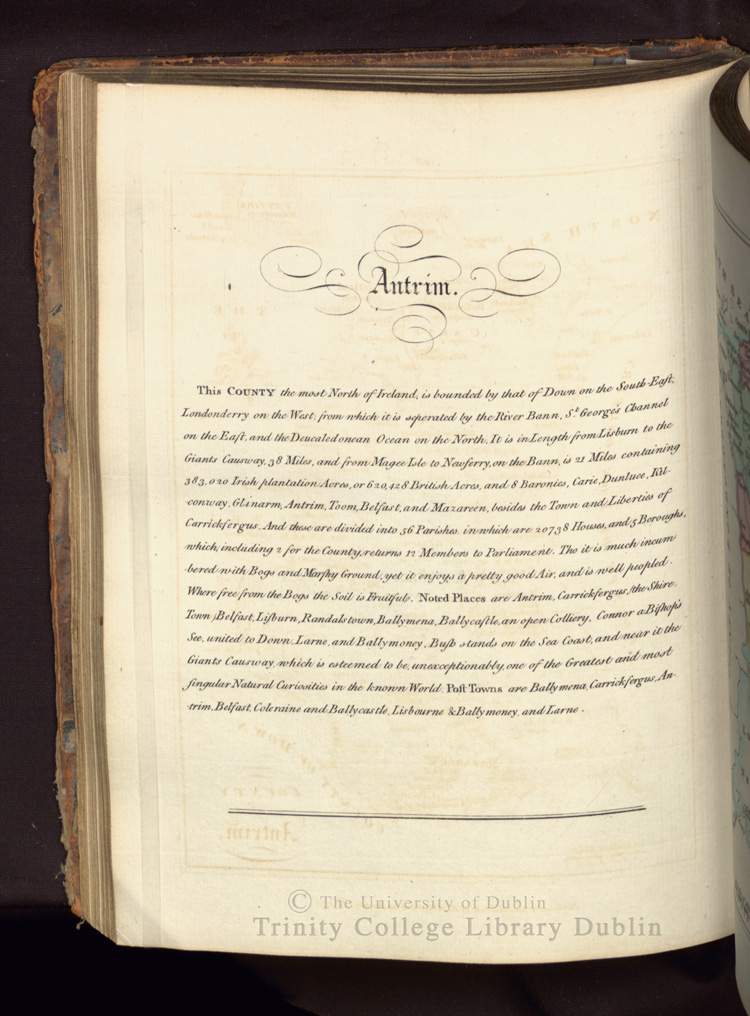 Antrim.
This COUNTY the most North of Ireland, is bounded by that of Down on the South-East;
Londonderry on the West, from which it is seperated by the River Bann, S.t George's Channel
on the East, and the Deucaledonean Ocean on the North. It is in Length from Lisburn to the
Giants Causway, 38 Miles, and from Magee Isle to Newferry, on the Bann, is 21 Miles containing
383,020 Irish plantation Acres, or 620,428 British Acres, and 8 Baronies, Carie, Dunluce, Kil-
-conway, Glinarm, Antrim, Toom, Belfast, and Mazareen, besides the Town and Liberties of
Carrickfergus. And these are divided into 56 Parishes, in which are 20738 Houses, and 5 Boroughs,
which, including 2 for the County, returns 12 Members to Parliament. Tho it is much incum
-bered with Bogs and Marshy Ground, yet it enjoys a pretty good Air, and is well peopled.
Where free from the Bogs the Soil is Fruitful. Noted Places are Antrim, Carrickfergus, (the Shire
Town) Belfast, Lisburn, Randalstown, Ballymena, Ballycastle, an open Colliery, Connor a Bishop's
See, united to Down, Larne, and Ballymoney, Bush stands on the Sea Coast, and near it the
Giants Causway, which is esteemed to be, unexceptionably, one of the Greatest and most
singular Natural Curiosities in the known World. Post Towns are Ballymena, Carrickfergus, An-
-trim, Belfast, Coleraine and Ballycastle, Lisbourne & Ballymoney, and Larne.
© The University of Dublin
Trinity College Library Dublin